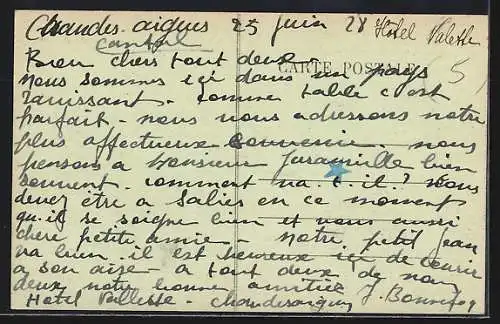 Chaudes-aigues 25 juin 28 Hôtel Valette
Cantal
CARTE POSTALE
5
Bien chers tout deux
Nous sommes içi dans un pays
ravissant - comme table c'est
parfait - nous nous adressons notre
plus affectueux souvenir - nous
pensons a monsieur bien
souvent - comment va-t-il? Vous
devez être a Salies en ce moment
qu'il se soigne bien et vous aussi
chère petite amie - Notre petit Jean
va bien - il est heureux içi de courir
a son aise - a tout deux de nous
deux notre bonne amitiée
Hotel Vallette - Chaudesaigues J. Bonnefoy